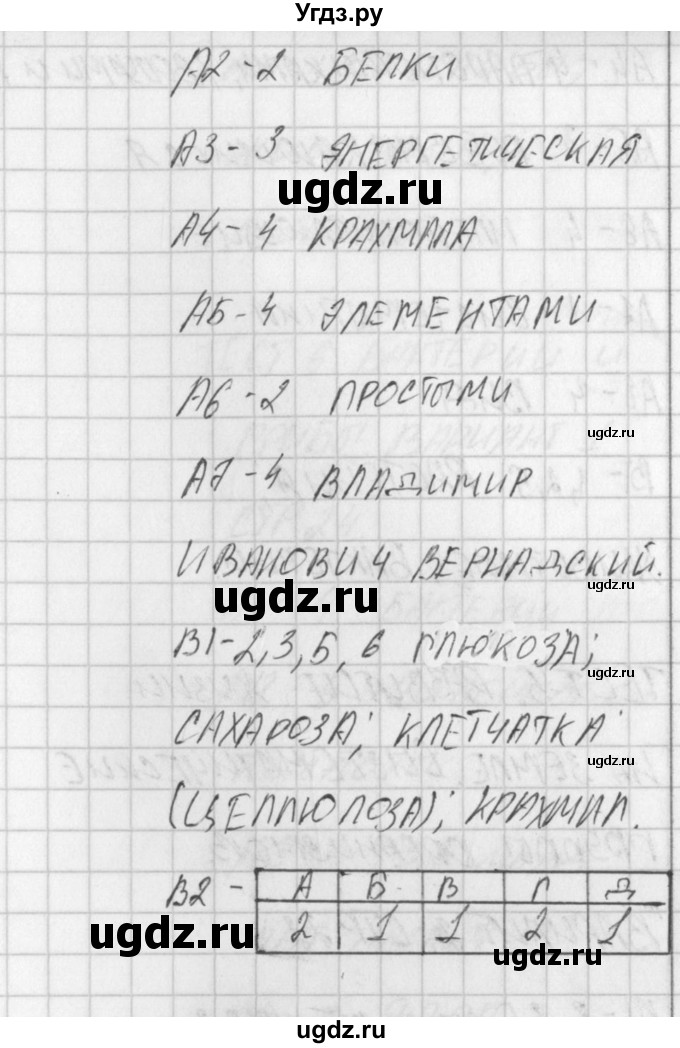 Угдз.ру
А2-2 БЕЛКИ
А3-3 ЭНЕРГЕТИЧЕСКАЯ
ugdz.ru
А4-4 КРАХМАЛА
А5-4 ЭЛЕМЕНТАМИ
А6-2 ПРОСТЫМИ
ugdz.ru
А7-4 ВЛАДИМИР
ИВАНОВИЧ ВЕРНАДСКИЙ.
ugdz.ru
ugdz.ru
В1-2,3,5,6 ГЛЮКОЗА;
САХАРОЗА; КЛЕТЧАТКА
ugdz.ru
(ЦЕЛЛЮЛОЗА); КРАХМАЛ.
В2- А Б В Г Д
2 1 1 2 1
ugdz.ru
ugdz.ru
ugdz.ru